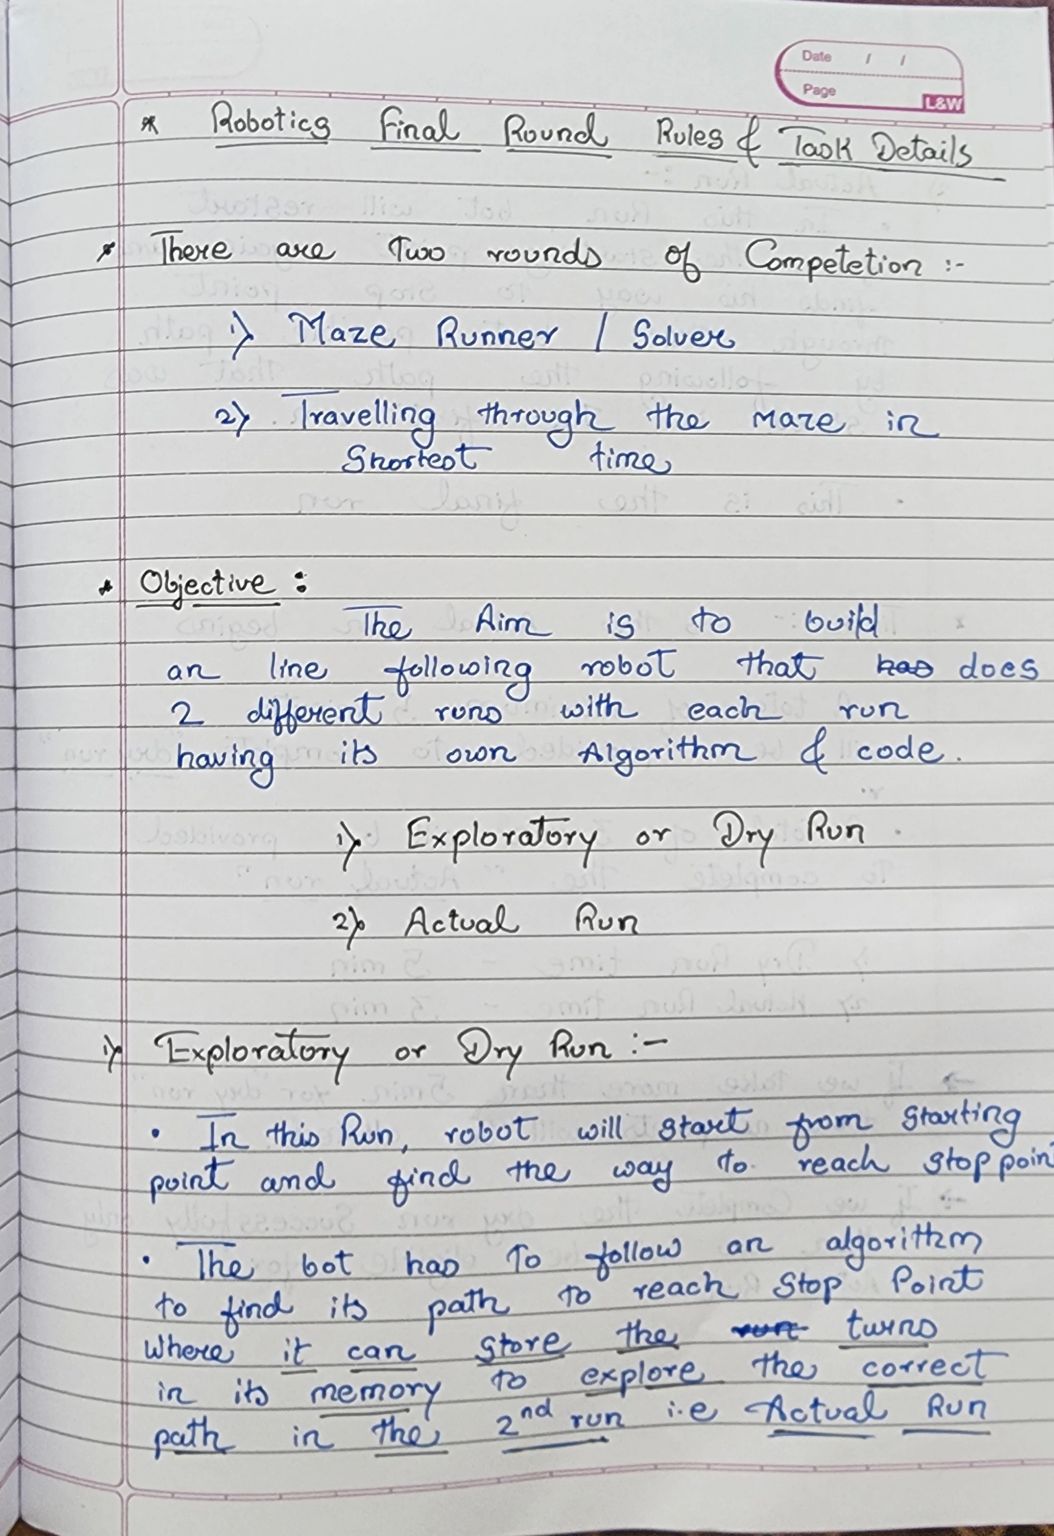 Date / /
Page
L&W
* Robotics Final Round Rules & Task Details
* There are Two rounds of Competetion :-
1) Maze Runner / Solver
2) Travelling through the Maze in
Shortest time
* Objective :
The Aim is to build
an line following robot that has does
2 different runs with each run
having its own Algorithm & code.
1) Exploratory or Dry Run
2) Actual Run
1) Exploratory or Dry Run :-
• In this Run, robot will start from starting
point and find the way to reach stop poin
• The bot has To follow an algorithm
to find its path to reach Stop Point
where it can store the turns
in its memory to explore the correct
path in the 2nd run i.e Actual Run